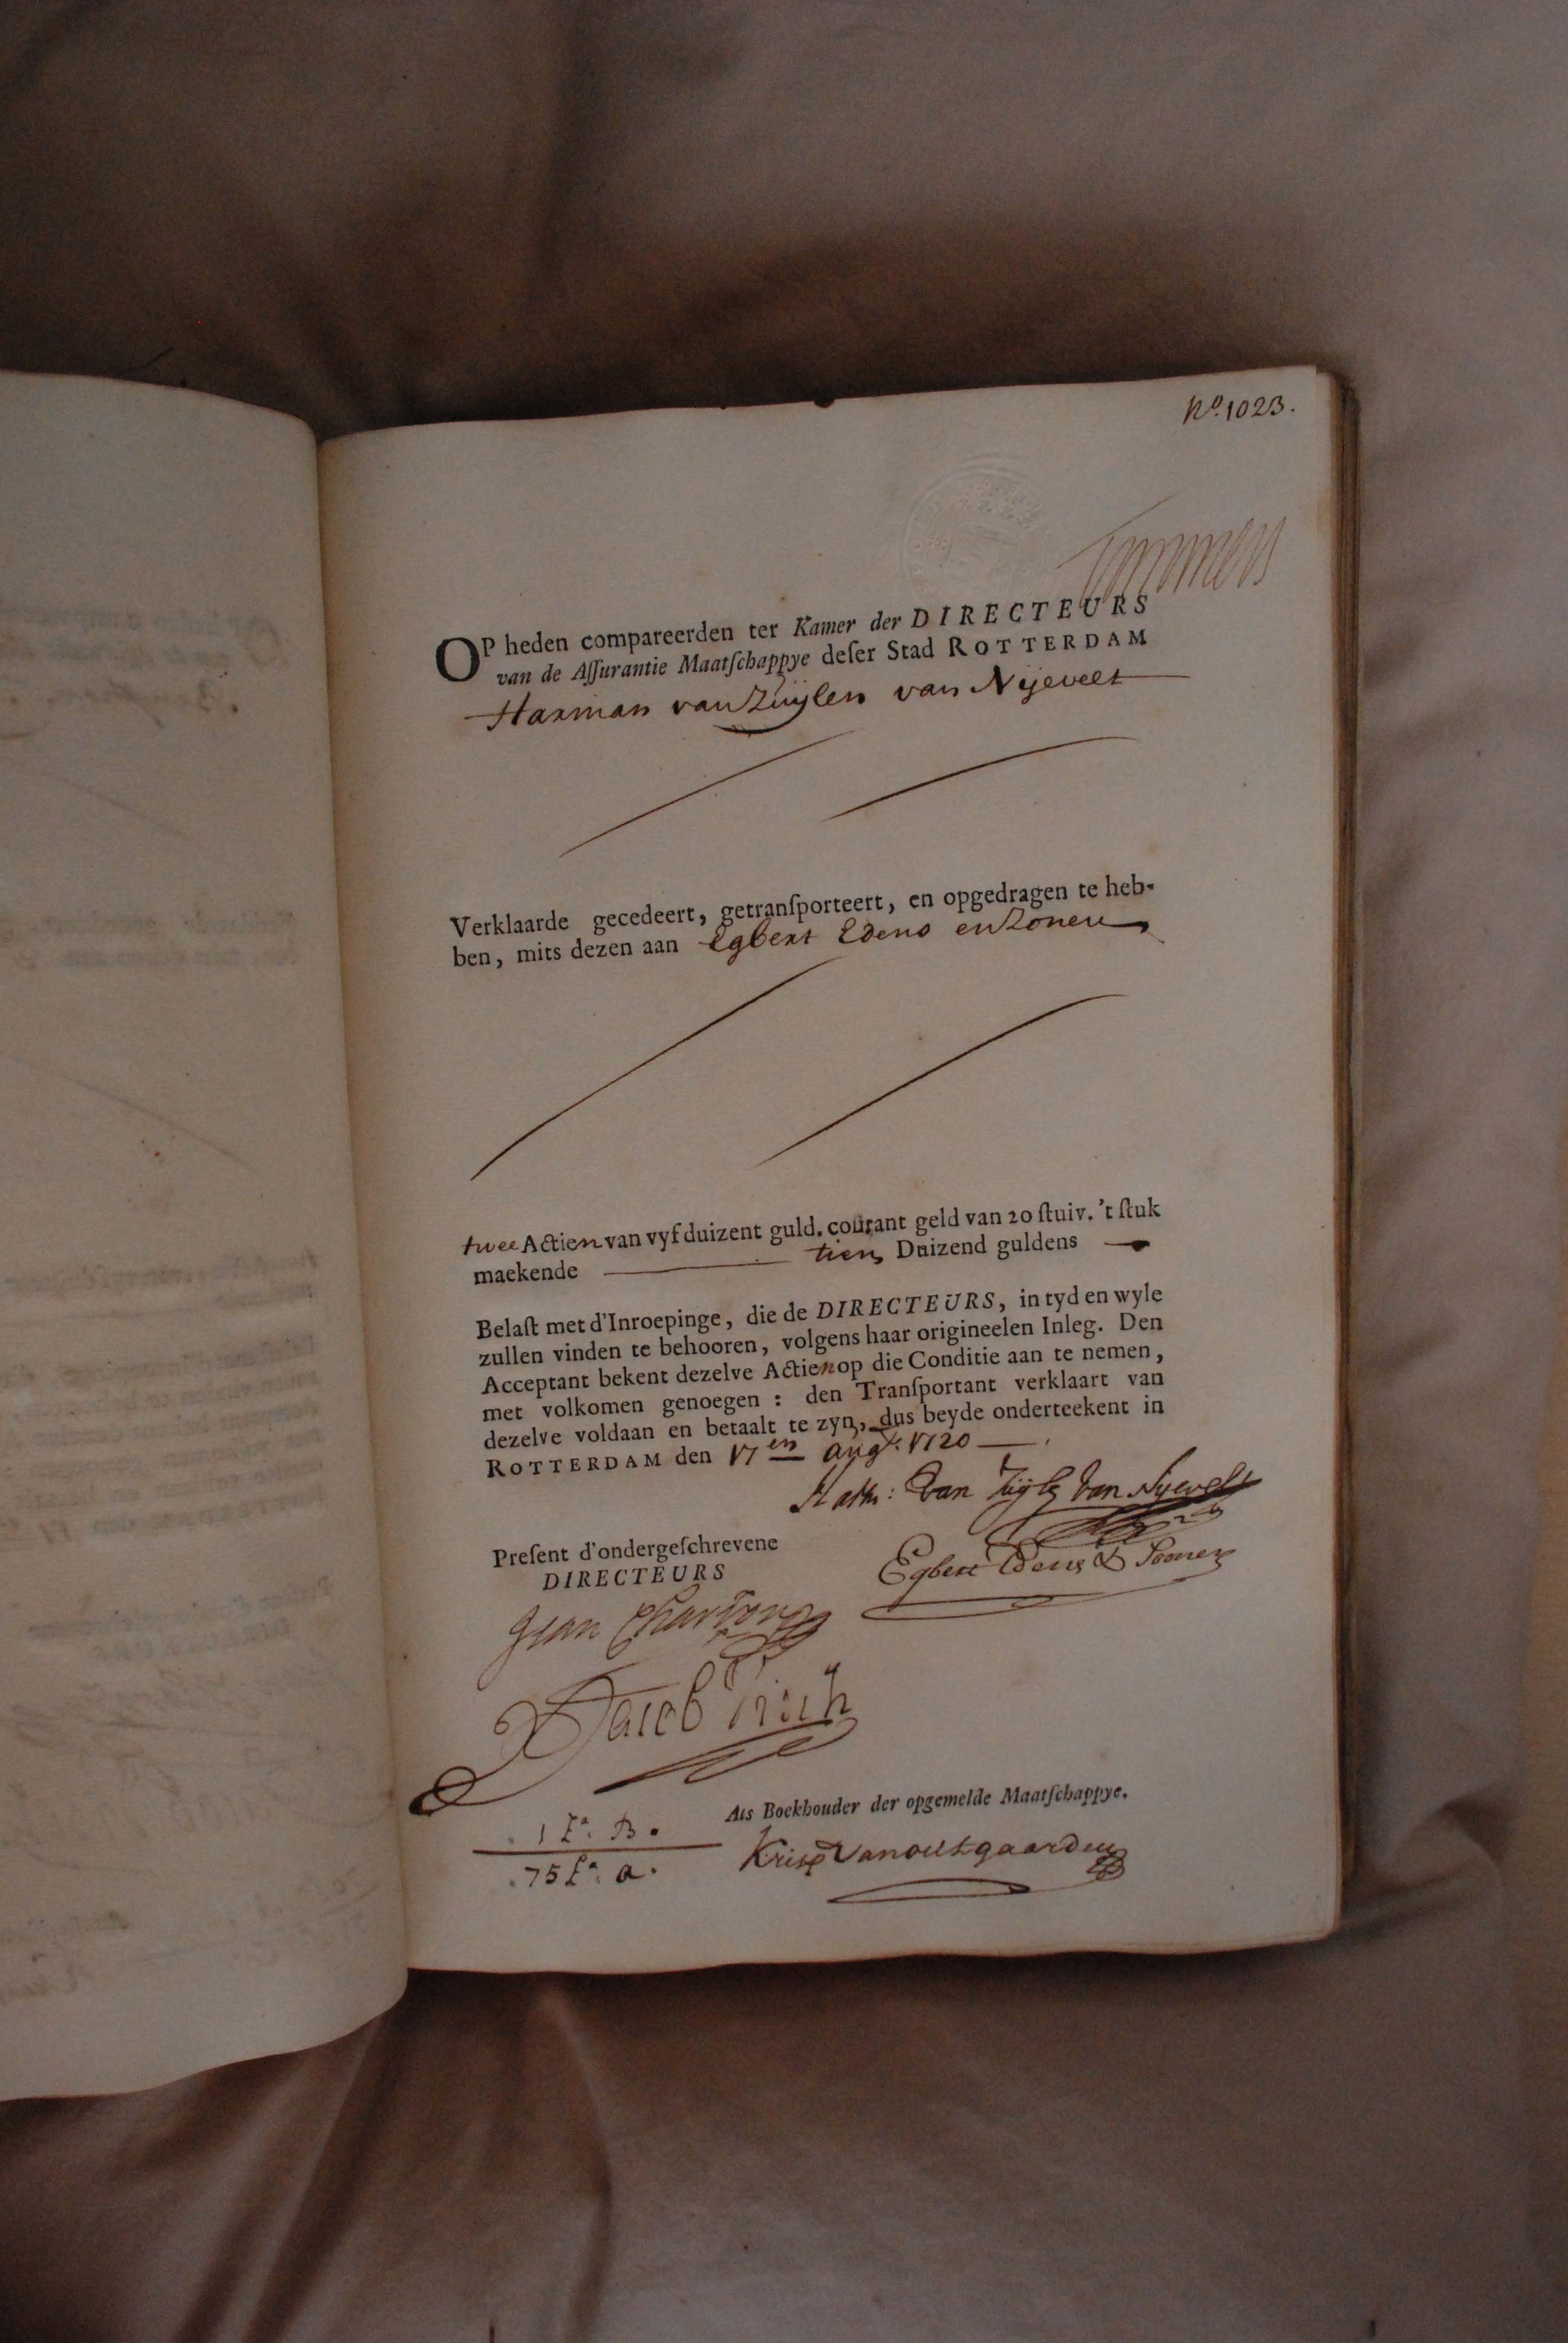 No. 1023.
OP heden compareerden ter Kamer der DIRECTEURS
van de Aſſurantie Maatſchappye deſer Stad ROTTERDAM
Harman van Zuÿlen van Nÿevelt
Verklaarde gecedeert, getranſporteert, en opgedragen te heb-
ben, mits dezen aan Egbert Edens en Zonen
twee Actien van vyf duizent guld. courant geld van 20 ſtuiv. 't ſtuk
maekende tien Duizend guldens
Belaſt met d'Inroepinge, die de DIRECTEURS, in tyd en wyle
zullen vinden te behooren, volgens haar origineelen Inleg. Den
Acceptant bekent dezelve Actien op die Conditie aan te nemen,
met volkomen genoegen : den Tranſportant verklaart van
dezelve voldaan en betaalt te zyn, dus beyde onderteekent in
ROTTERDAM den 17en augt. 1720
van Zuylen van Nyevelt
Egbert Edens & Soonen
Preſent d'ondergeſchrevene
DIRECTEURS
Jean Chartons
Jacob Visch
Als Boekhouder der opgemelde Maatſchappye.
1 La. B.
75 La. a.
Krisp van outgaarden